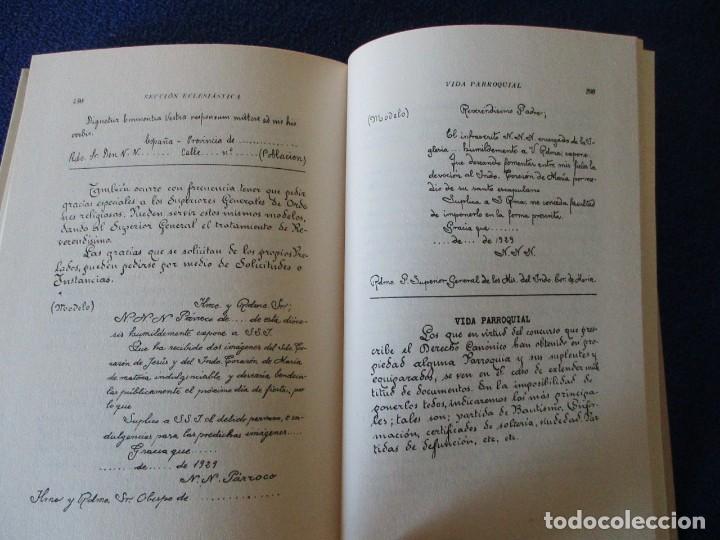 SECCIÓN ECLESIÁSTICA
Dignetur Eminentia Vestra responsum mittere ad me his
verbis:
España - Provincia de..............
Rdo. Sr. Don N. N....... Calle...... nº...... (Población)
También ocurre con frecuencia tener que pedir
gracias especiales a los Superiores Generales de Orde-
nes religiosos. Pueden servir estos mismos modelos,
dando al Superior General el tratamiento de Re-
verendísimo.
Las gracias que se solicitan de los propios Pre-
lados, pueden pedirse por medio de Solicitudes o
Instancias.
(Modelo) Ilmo. y Rdmo. Sr.;
N.N.N. Párroco de..... de esta dióce-
sis humildemente expone a S.S.I.
Que ha recibido dos imágenes del Sdo. Co-
razón de Jesús y del Indo. Corazón de María
de materia indulgenciable, y desearía bendecir-
las públicamente el próximo día de fiesta, por
lo que
Suplica a S.S.I. el debido permiso, e in-
dulgencias para las predichas imágenes....
Gracia que......
........ de ...... de 1929
N.N. Párroco
Ilmo y Rdmo. Sr. Obispo de ................
VIDA PARROQUIAL
(Modelo)
Reverendísimo Padre;
El infrascrito N.N.N. encargado de la I-
glesia ... humildemente a V. Rdma. expone:
Que deseando fomentar entre mis fieles la
devoción al Indo. Corazón de María por me-
dio de su santo escapulario
Suplica a S. Rma. me conceda facultad
de imponerlo en la forma prescrita.
Gracia que ........
.... de .... de 1929
N.N.N.
Rdmo. P. Superior General de los Mis. del Indo. Cor. de María.
VIDA PARROQUIAL
Los que en virtud del concurso que pres-
cribe el Derecho Canónico han obtenido en pro-
piedad alguna Parroquia y sus suplentes y
equiparados, se ven en el caso de extender mul-
titud de documentos. En la imposibilidad de
ponerlos todos, indicaremos los más principa-
les; tales son: partida de Bautismo, Confir-
mación, certificados de soltería, viudedad, Par-
tidas de defunción, etc, etc.
todocoleccion